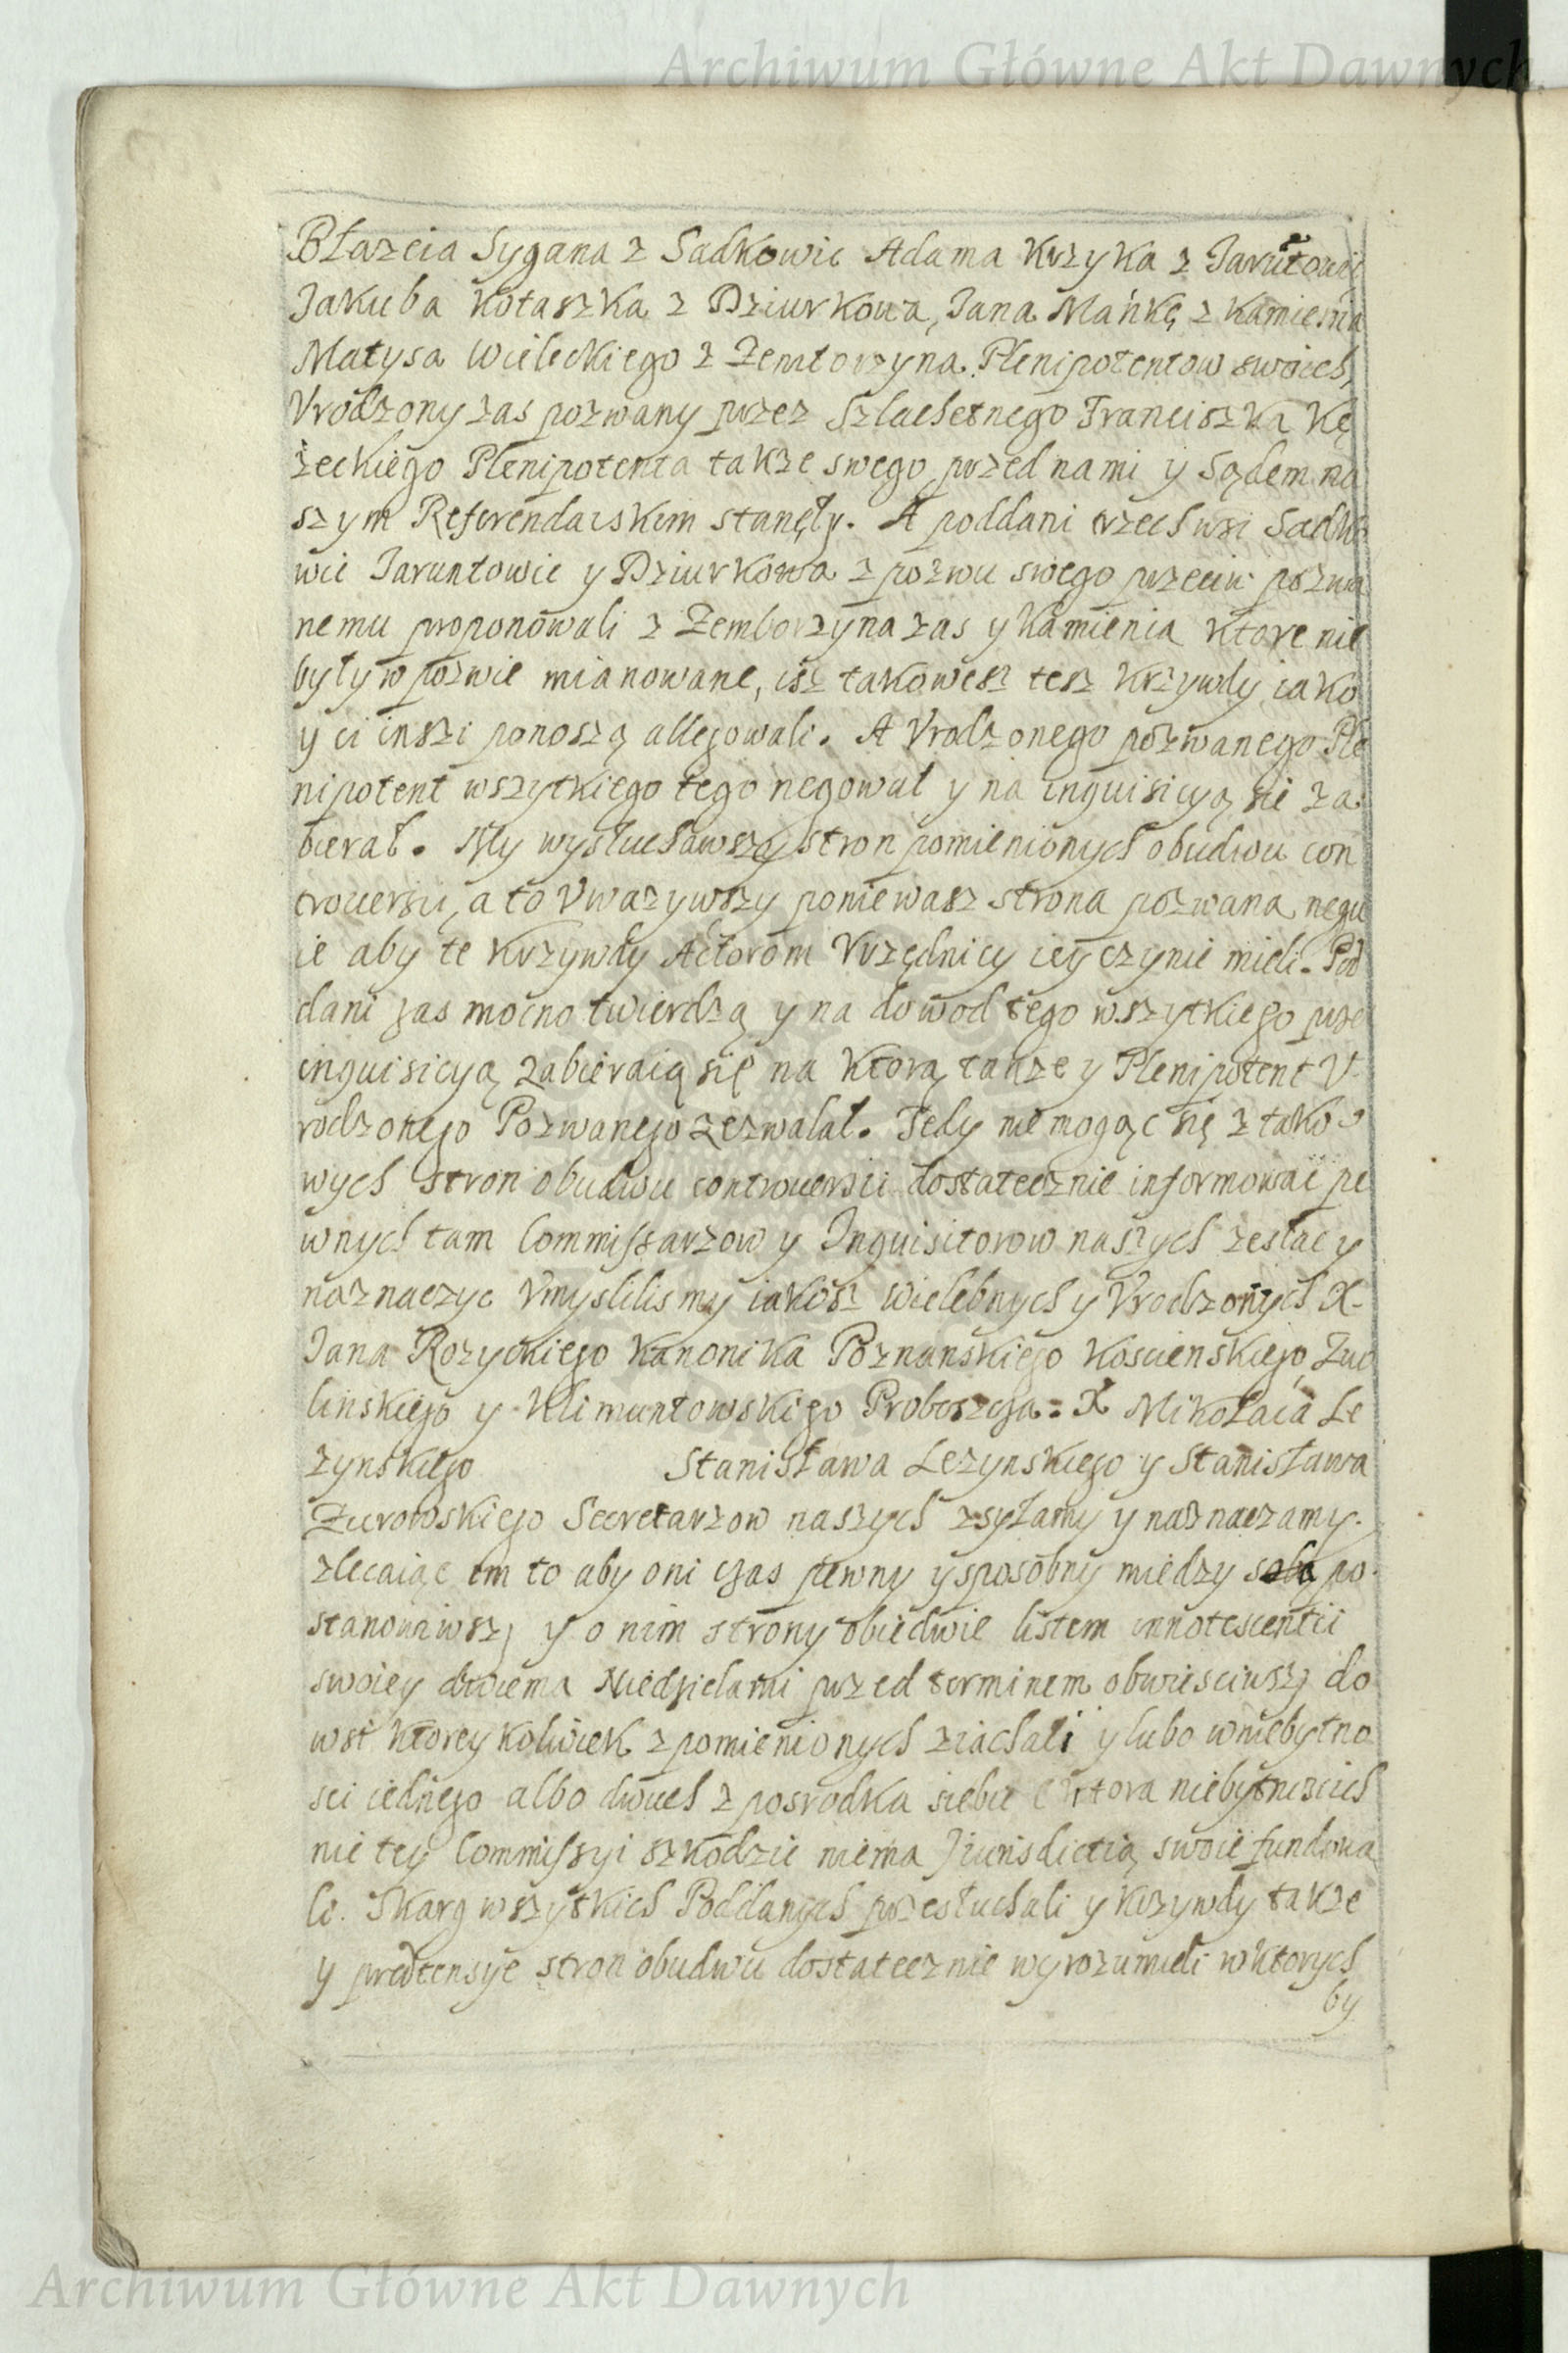 Archiwum Główne Akt Dawnych
Błazeia Sygana z Sadkowic Adama Krzyka z Jaruntowic
Jakuba Kotaszka z Dziurkowa, Jana Mańkę z Kamienia
Matysa Wieleckiego z Zemborzyna Plenipotentow swoich,
Vrodzony zas pozwany przez Szlachetnego Franciszka Kę
żeckiego Plenipotenta takze swego przed nami y Sądem na
szym Referendarskim stanęły. A poddani trzech wsi Sadko
wic Jaruntowic y Dziurkowa z pozwu swego przeciw pozwa
nemu proponowali z Zemborzyna zas y Kamienia ktore nie
były w pozwie mianowane, isz takowesz tesz krzywdy iako
y ci inszi ponoszą allegowali. A Vrodzonego pozwanego Ple
nipotent wszytkiego tego negował y na inquisicyą się za
bierał. My wysłuchawszy stron pomienionych obudwu con
trouersii, a to Vwazywszy poniewasz strona pozwana negu
ie aby te krzywdy Actorom Vrzędnicy iey czynic mieli. Pod
dani zas mocno twierdzą y na dowod tego wszytkiego prze
inquisicyą zabieraią się na ktorą takze y Plenipotent V
rodzonego Pozwanego zezwalał. Tedy nie mogąc się z tako
wych stron obudwu controuersii dostatecznie informowac pe
wnych tam Commissarzow y Inquisitorow naszych zesłac y
naznaczyc Vmyslilismy iakosz Wielebnych y Vrodzonych X.
Jana Rozyckiego Kanonika Poznanskiego Koscienskiego, Zwo
linskiego y Klimuntowskiego Proboszcza: X Mikołaia Le
zynskiego Stanisława Lezynskiego y Stanisława
Zurowskiego Secretarzow naszych zsyłamy y naznaczamy.
zlecaiąc im to aby oni czas pewny y sposobny miedzy sobą po
stanowiwszy y o nim strony obiedwie listem innotescentii
swoiey dwiema Niedzielami przed terminem obwiesciwszy do
wsi ktorey kolwiek z pomienionych ziachali y lubo w niebytno
sci iednego albo dwuch z posrodka siebie ktora niebytnosc ich
nic tey Commissyi szkodzic niema Jurisdictią swoię fundowa
li. Skarg wszytkich Poddanych przesłuchali y krzywdy takze
y praetensye stron obudwu dostatecznie wyrozumieli w ktorych
by
Archiwum Główne Akt Dawnych